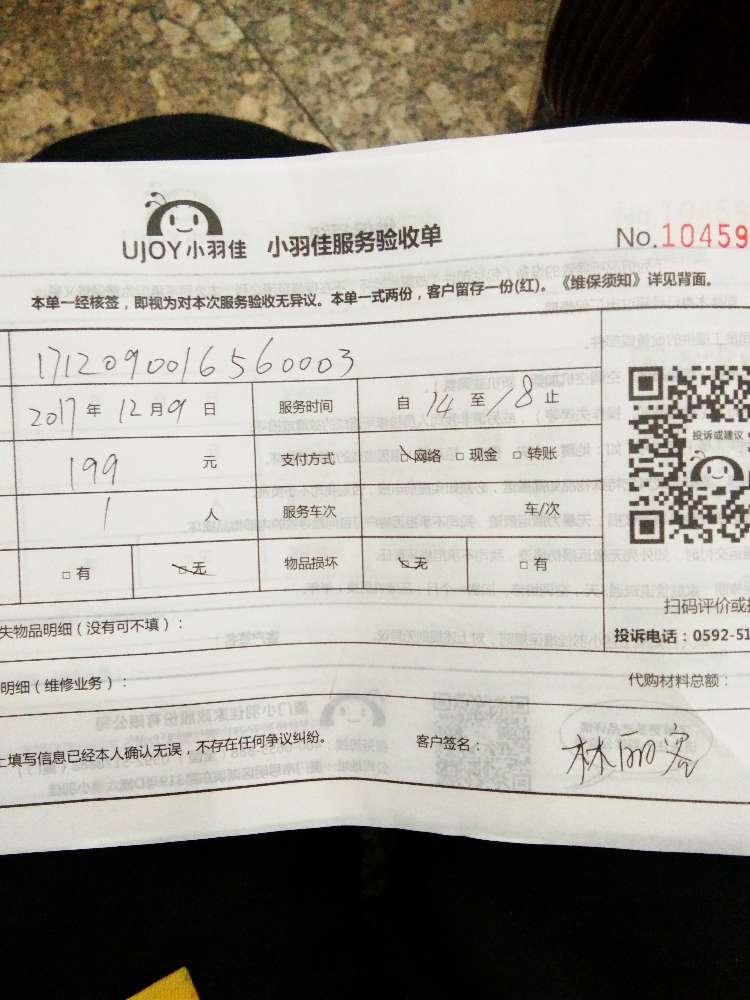 UJOY小羽佳 小羽佳服务验收单 No.10459
本单一经核签，即视为对本次服务验收无异议。本单一式两份，客户留存一份(红)。《维保须知》详见背面。
1712090016560003
2017年12月9日 服务时间 自14至18止
199元 支付方式 □网络 □现金 □转账
投诉或建议
1人 服务车次 车/次
□有 □无 物品损坏 □无 □有
扫码评价或
失物品明细（没有可不填）：
投诉电话：0592-51
明细（维修业务）： 代购材料总额：
上填写信息已经本人确认无误，不存在任何争议纠纷。 客户签名： 林丽容